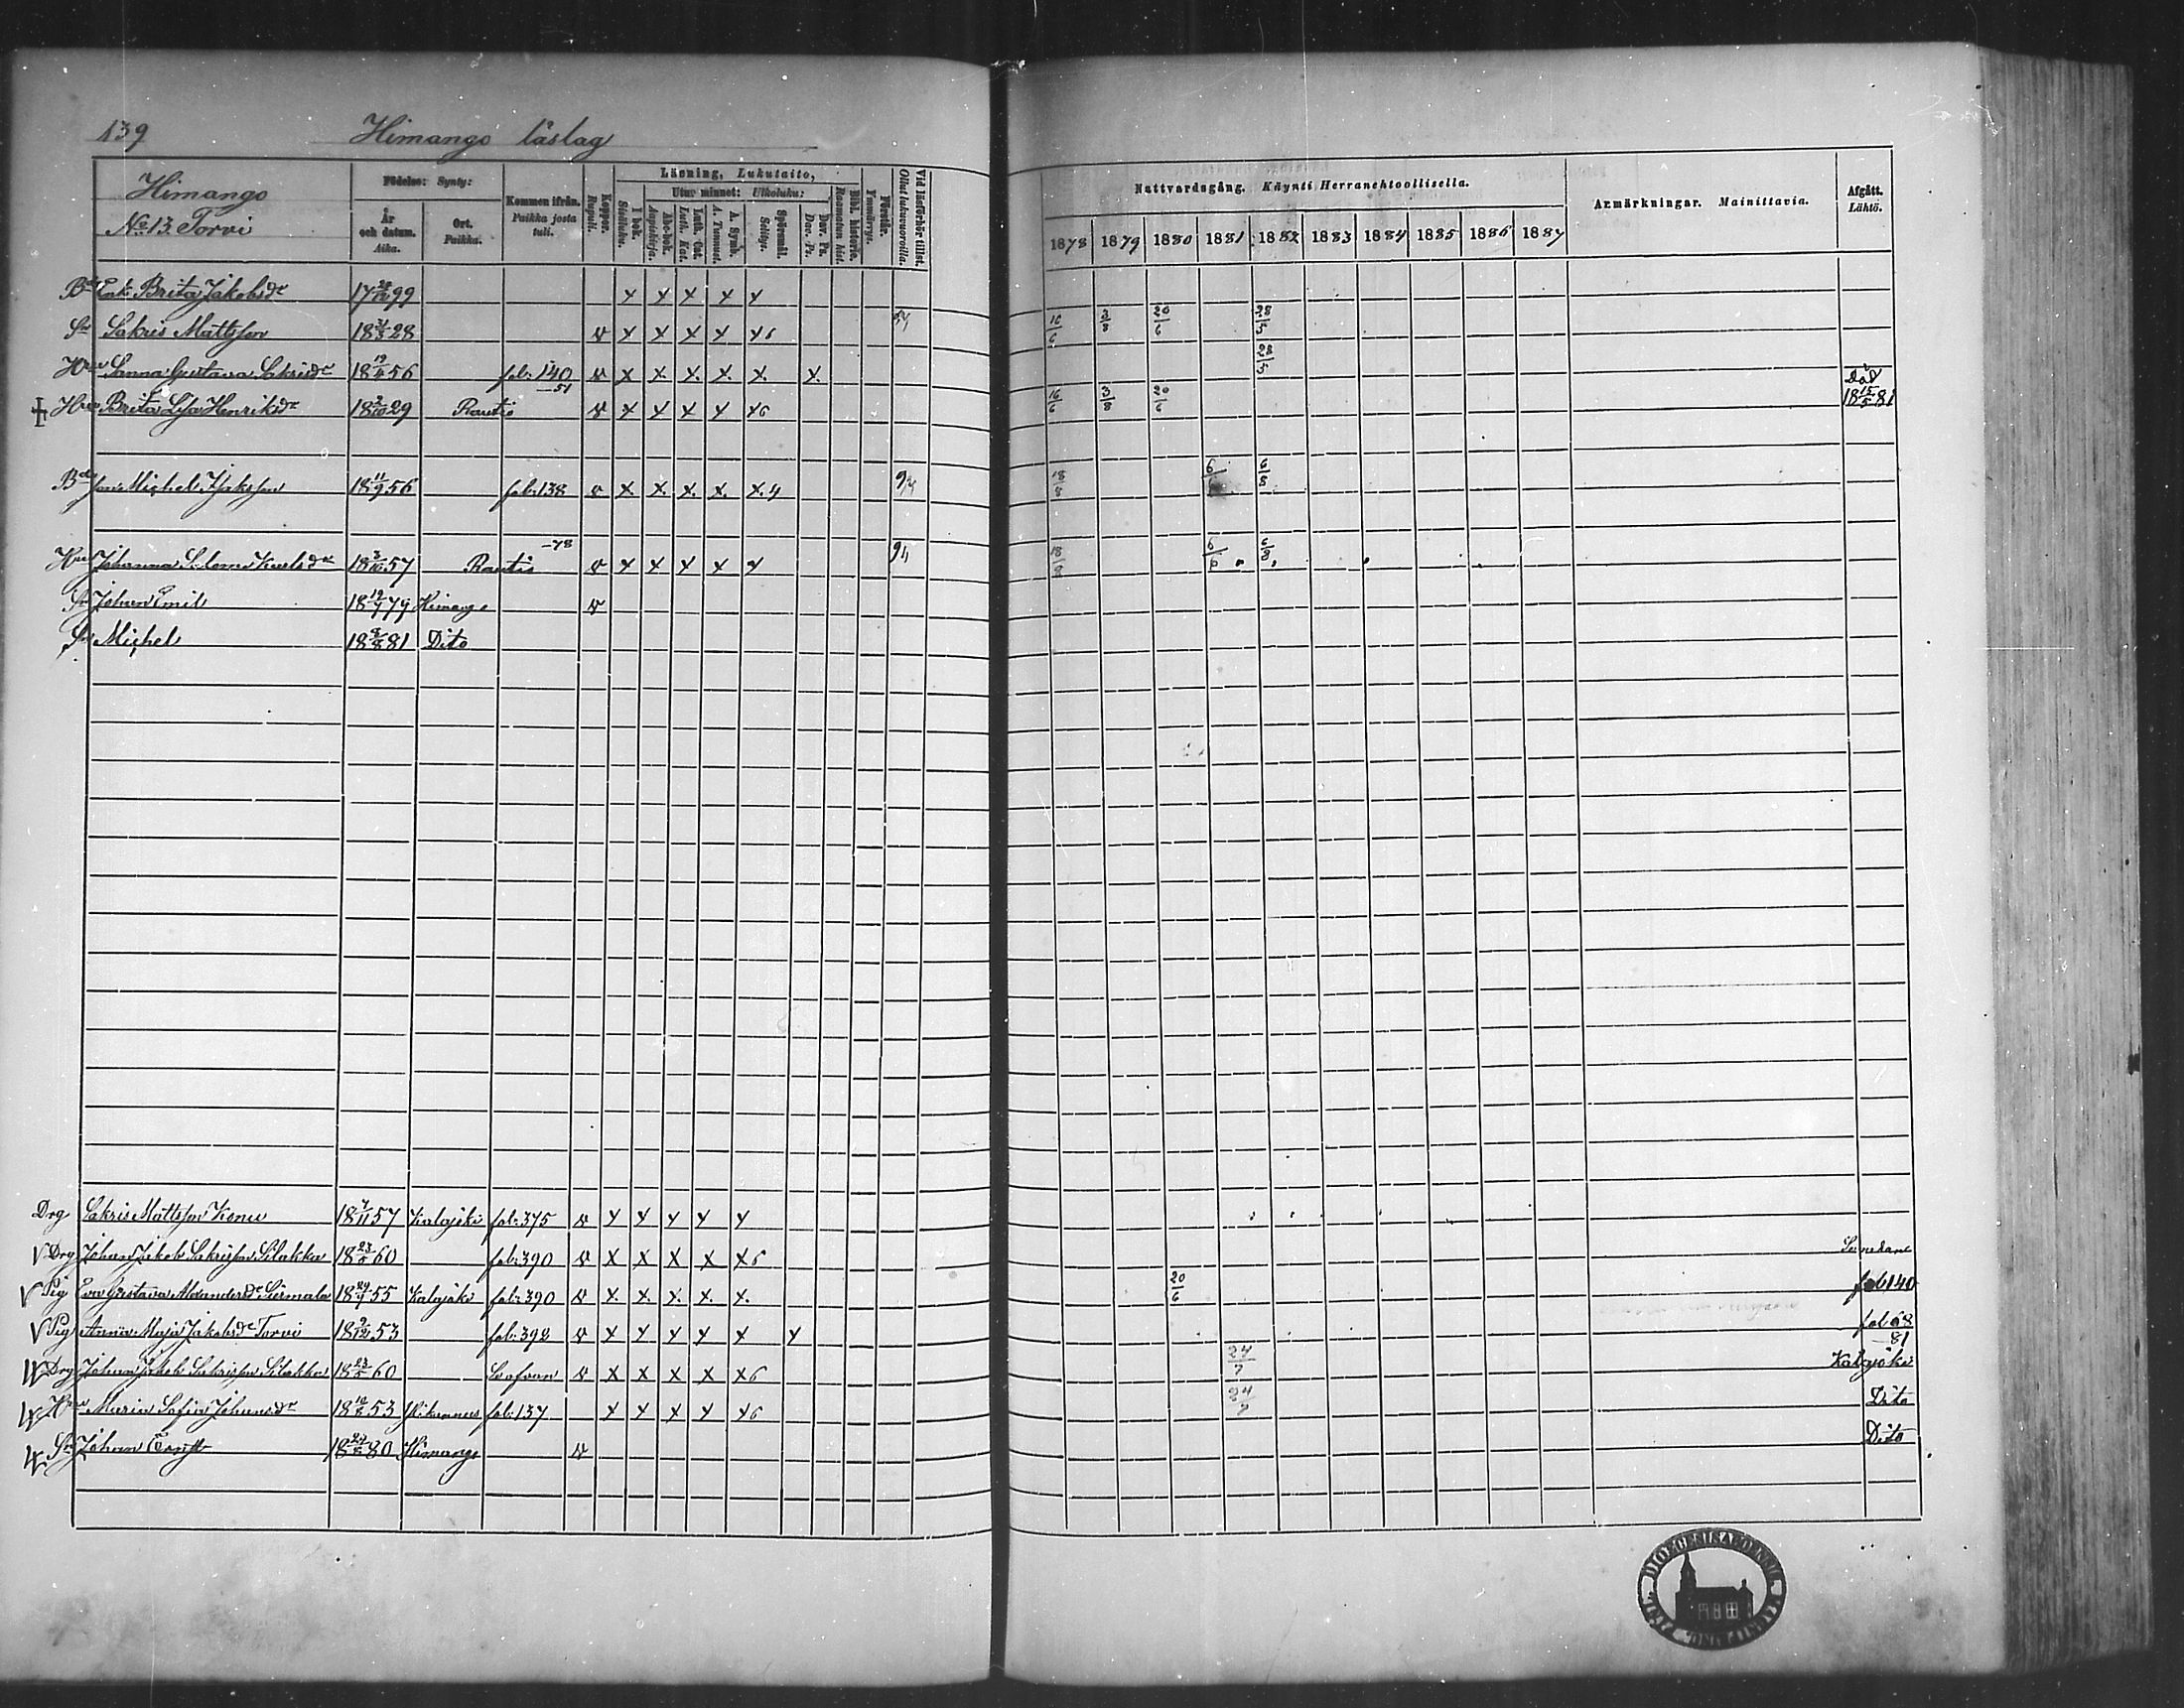 139 Himango läslag
Himango
No 13. Torvi
Födelse: Synty:
År och datum. Aika.
Ort. Paikka.
Kommen ifrån. Paikka josta tuli.
Koppor. Rupuli.
Läsning, Lukutaito,
I bok. Sisäluku.
Utur minnet: Ulkoluku:
Abc-bok. Aapiskirja.
Luth. Cat. Luth. Kat.
A. Symb. A. Tunnust.
Spörsmål. Selitys.
Dav. Ps. Dav. Ps.
Bibl. historie. Raamatun hist.
Förstår. Ymmärrys.
Vid läsförhör tillst. Ollut lukuvuoroilla.
Nattvardsgång. Käynti Herranehtoollisella.
1878 1879 1880 1881 1882 1883 1884 1885 1886 1887
Anmärkningar. Mainittavia.
Afgått. Lähtö.
Enk. Brita Jakobsdr 17 99 x x x x x
Sakris Mattsson 18 28 v x x x x x6 16/6 3/8 20/6 28/5
Sanna Gustava Sakrisdr 18 19/ 56 fol: 140 v x x. x. x. x. x. 28/5
-51
Hru Brita Lisa Henriksdr 18 /10 29 Rautio v x x x x x6 16/6 3/8 20/6 Död 18 15/5 81
Michel Jakobsson 18 11/9 56 fol: 138 v x. x. x. x. x.4 18/8 6/ 6/8
-78
Hru Johanna Karlsdr 18 3/10 57 Rautio v x x x x x 18/8 6/6 6/8
Sn Johan Emil 18 19/7 79 Himango v
Sn Michel 18 /8 81 Dito
Drg Sakris Mattsson 18 /11 57 Kalajoki fol: 375 v x x x x x
V Drg Johan Jakob Sakrisson Silakka 18 23/5 60 fol: 390 v x x x x x6
V Pig Eva Gustava Alexandersdr Siermala 18 29/7 55 Kalajoki fol: 390 v x. x. x. x. x. 20/6 fol 140
V Pig Anna Maja Jakobsdr Torvi 18 9/12 53 fol: 392 v x x x x x x fol 68
81
Drg Johan Jakob Sakrisson Silakka 18 23/5 60 v x x x x x6 24/7 Kalajoki
Hru Maria Sofia Johansdr 18 53 fol: 137 x x x x x6 24/7 Dito
Sn Johan Ernst 18 80 Himango v Dito